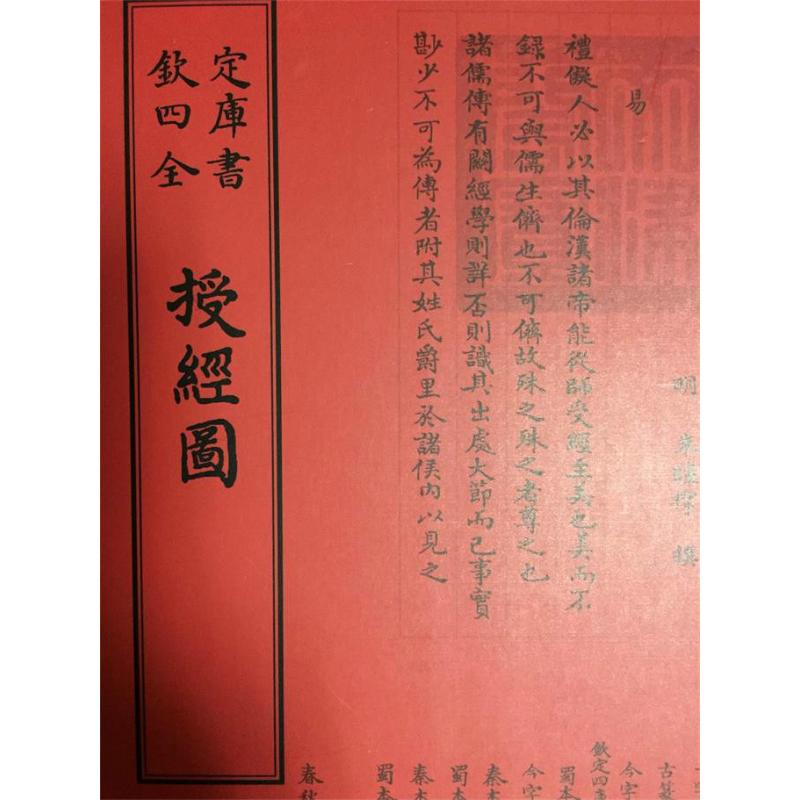 欽定四庫全書
授經圖
明 朱睦㮮 撰
易
禮儗人必以其倫漢諸帝能從師受經至美也美而不
録不可與儒生儕也不可儕故殊之殊之者尊之也
諸儒傳有關經學則詳否則識其出處大節而已事實
尠少不可為傳者附其姓氏爵里於諸侯内以見之
古篆
今字
欽定四庫
蜀本
今字
秦本
蜀本
秦本
蜀本
春秋